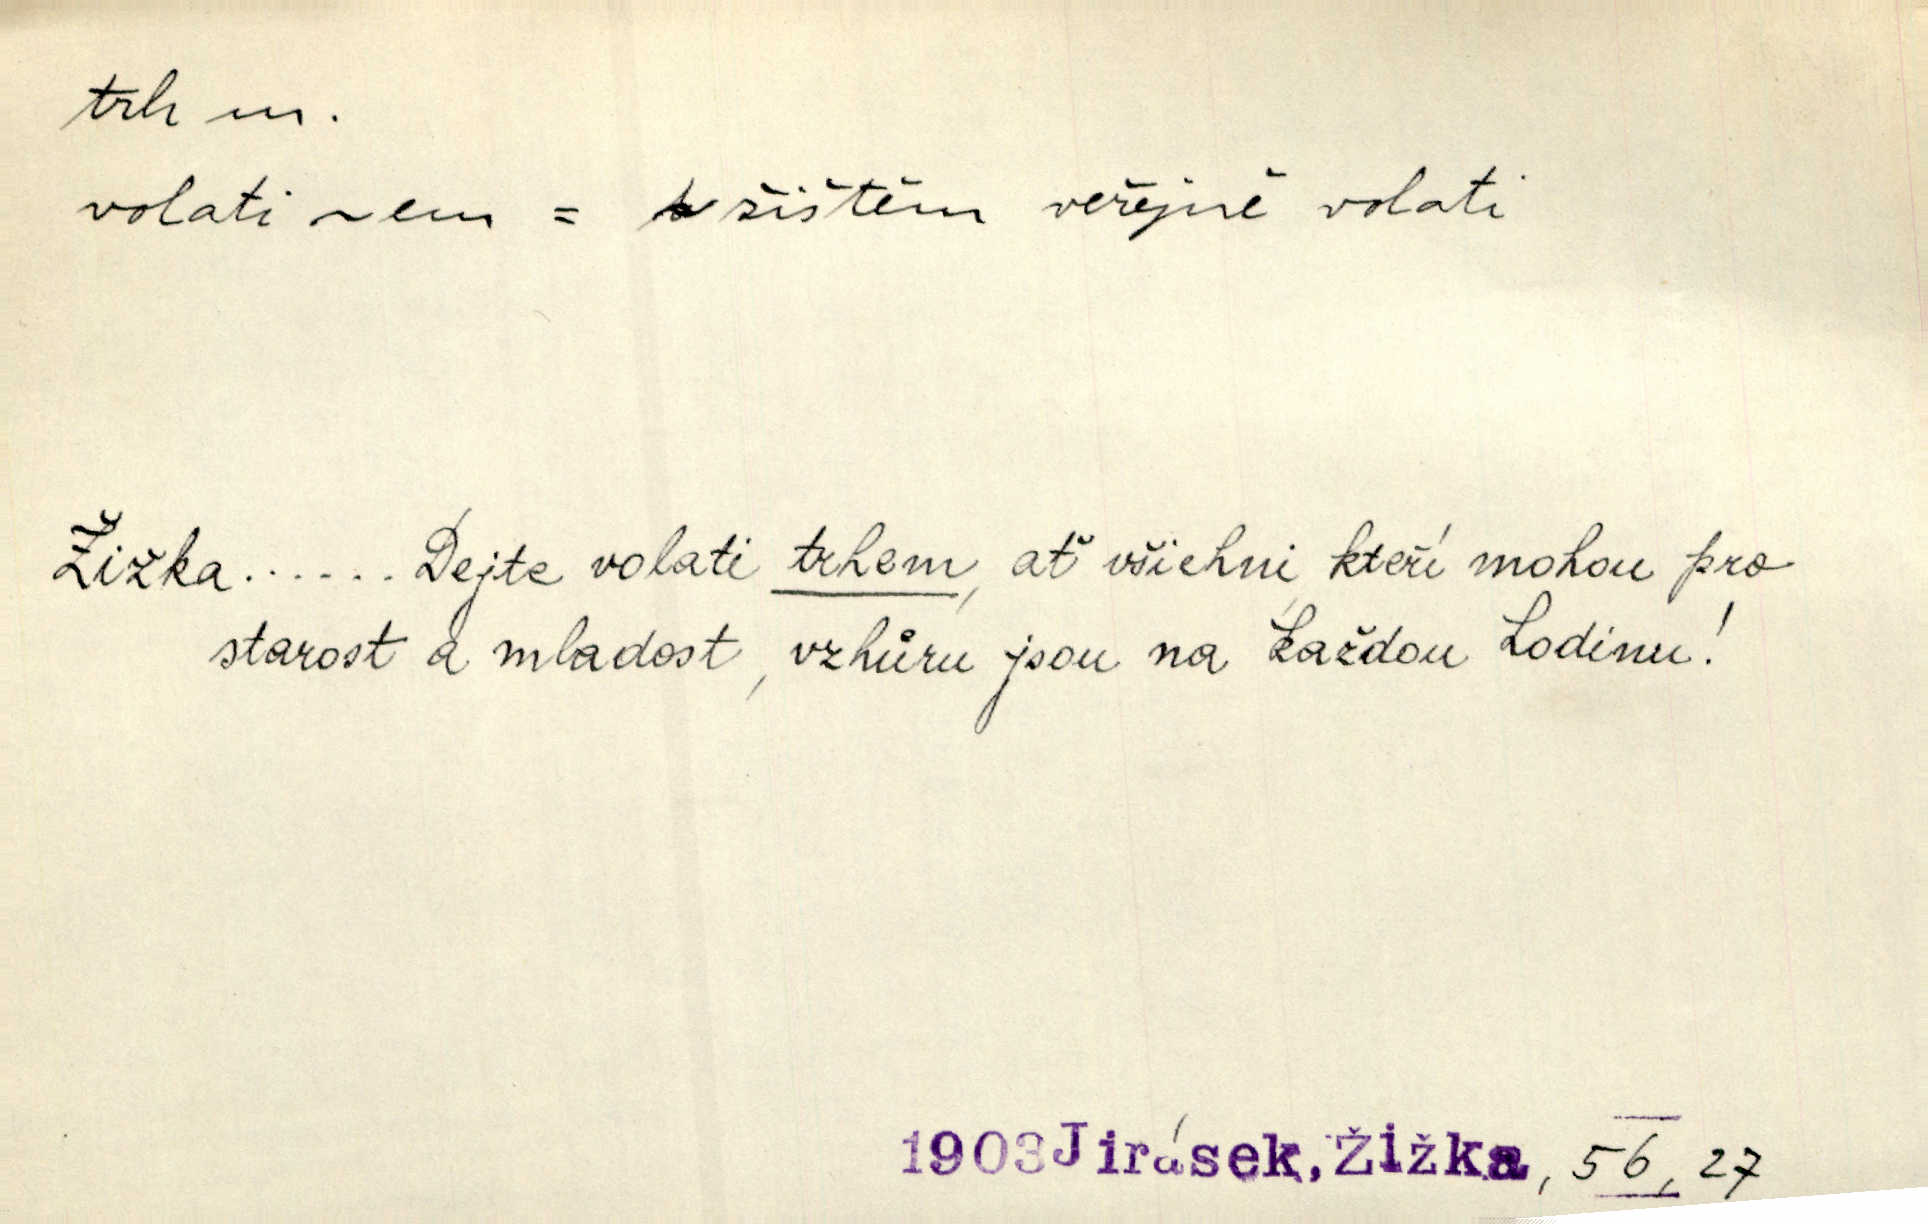 trh m.
volati ~em = tržištěm veřejně volati
Žižka...... Dejte volati trhem, ať všichni, kteří mohou pro
starost a mladost, vzhůru jsou na každou hodinu!
1903 Jirásek, Žižka, 56, 27